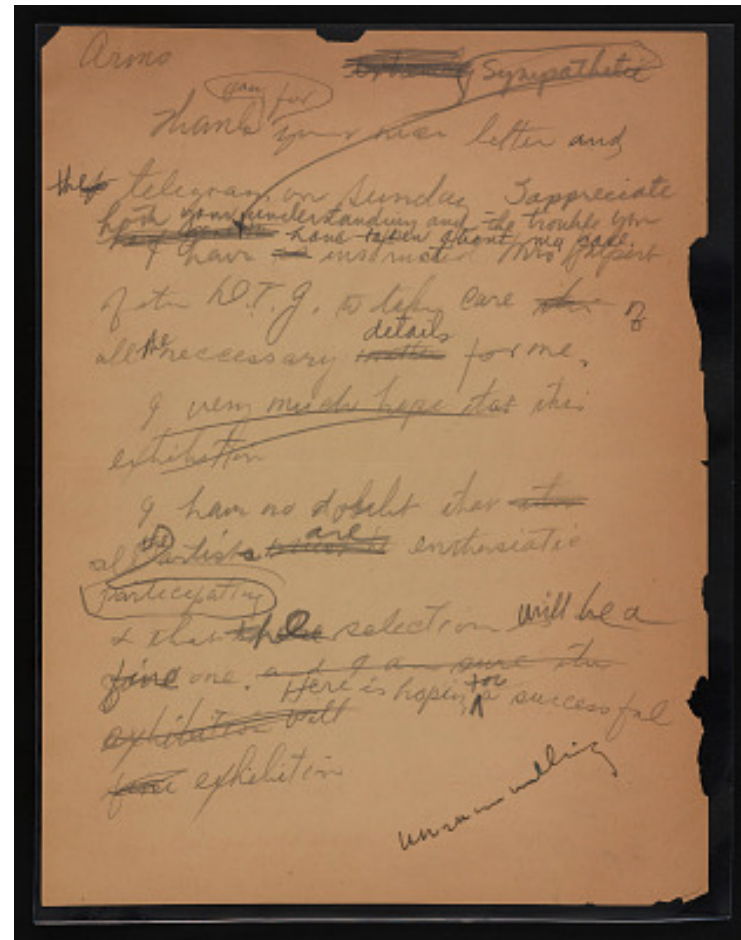 Sympathetic
you for
Thank your letter and
the telegram on Sunday I appreciate
both your understanding and the trouble you
have taken about my case.
I have instructed Mrs Halpert
of the D.T.G. to take care of
details
all the neccessary for me.
I very much hope that this
exhibition
I have no doubt that
are
all the artists enthusiatic
participating
& that the selection will be a
fine one. and I am sure the
Here is hoping for a successful
exhibition will
fine exhibition